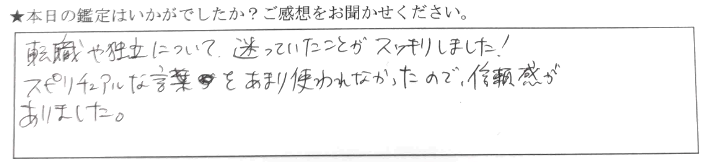 ★本日の鑑定はいかがでしたか？ご感想をお聞かせください。
転職や独立について、迷っていたことがスッキリしました！
スピリチュアルな言葉をあまり使われなかったので、信頼感が
ありました。